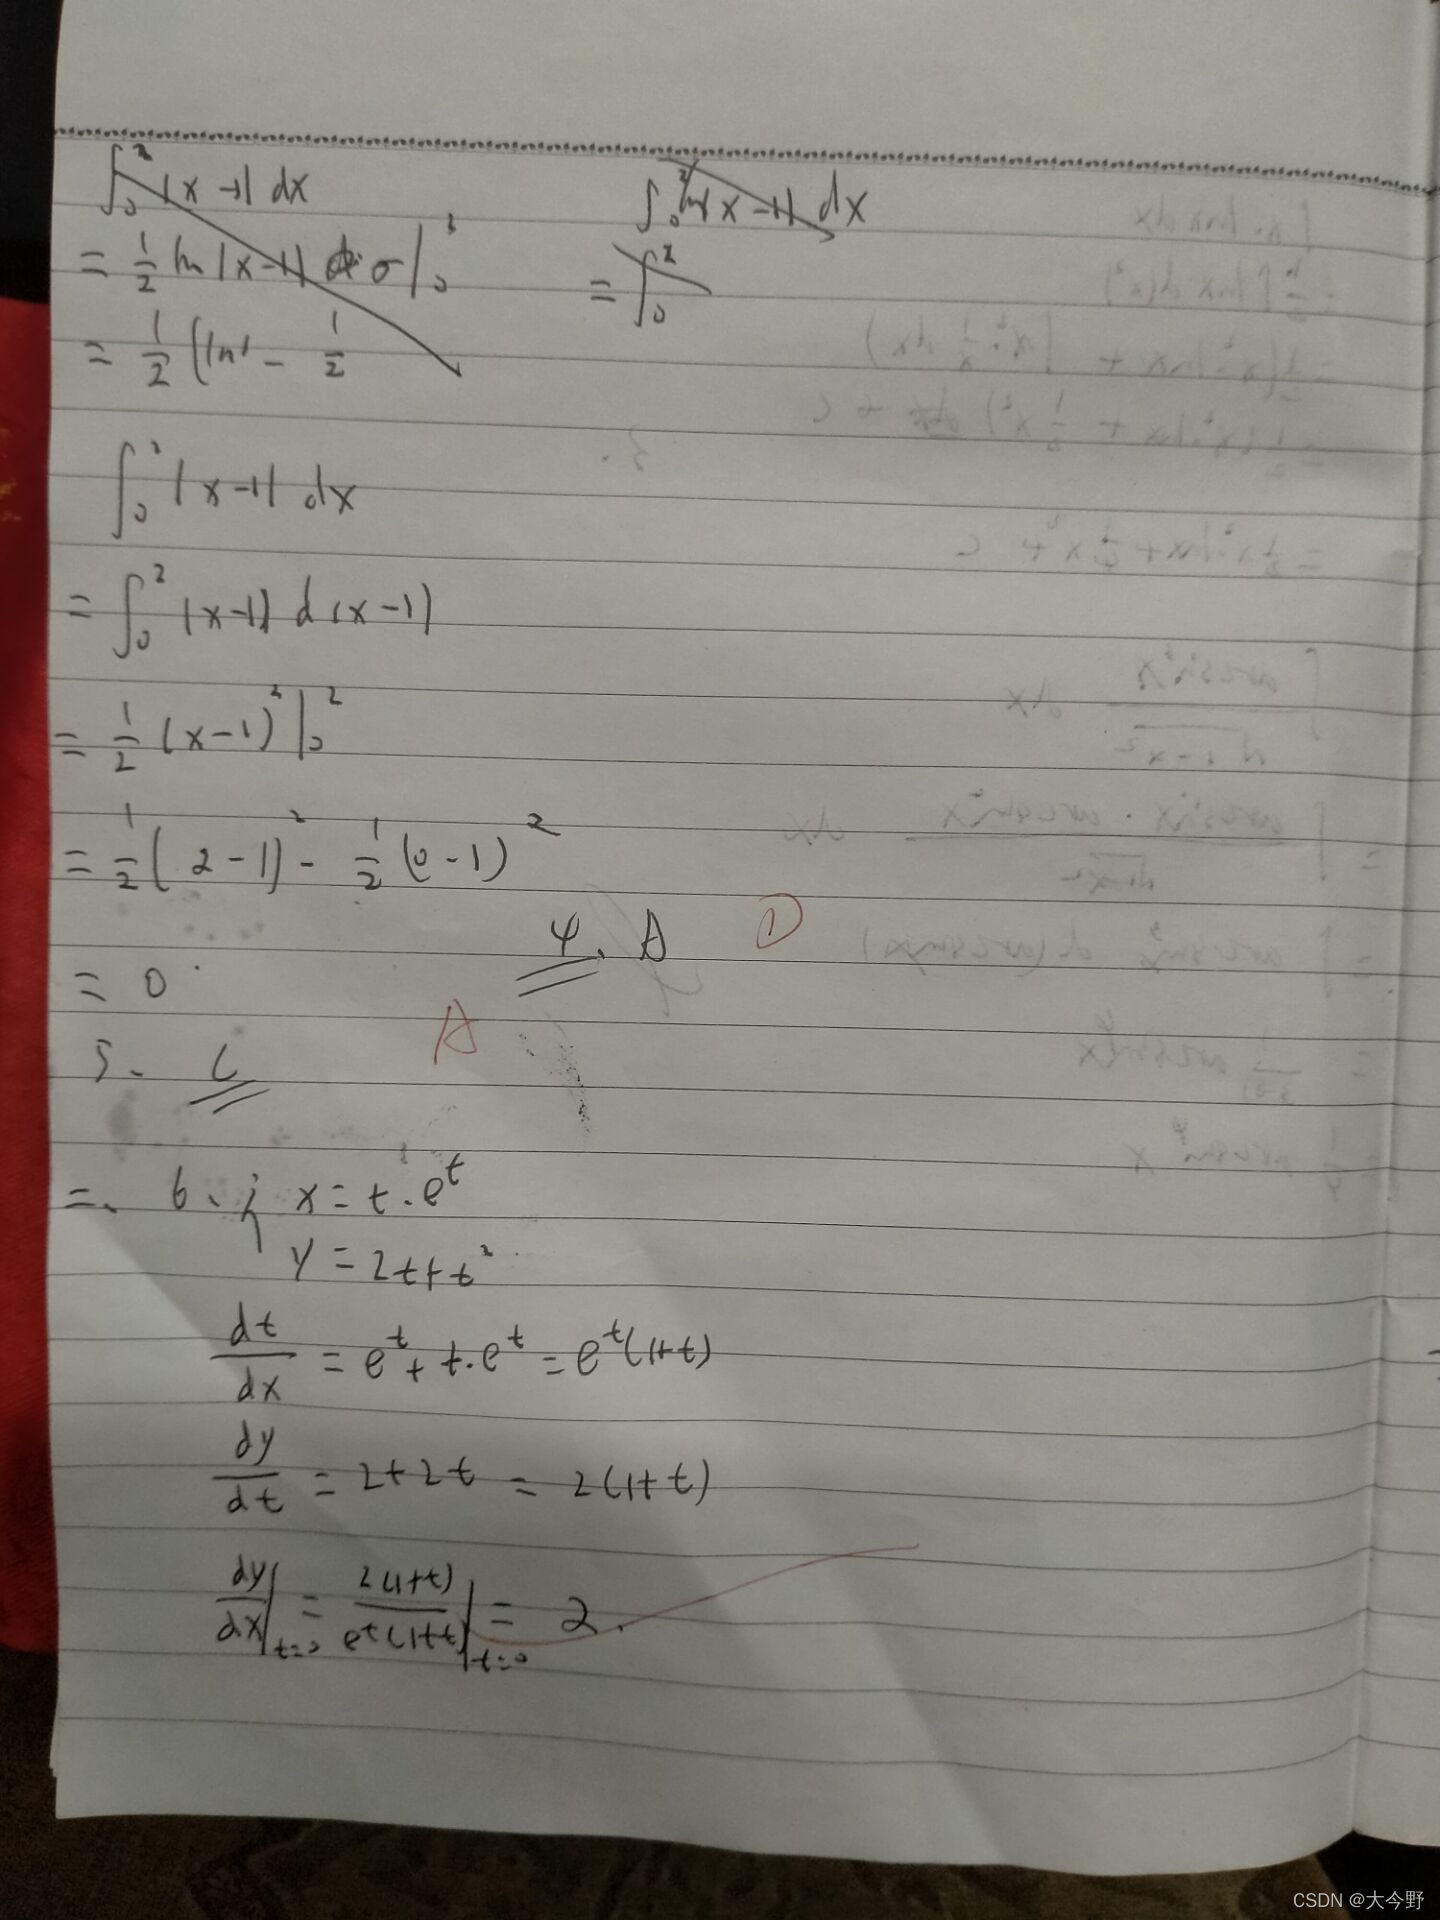 ∫₀² |x-1| dx
= 1/2 ln|x-1|
= 1/2 (ln1 - 1/2
∫₀² ln|x-1| dx
= ∫₀²
∫₀² |x-1| dx
= ∫₀² (x-1) d(x-1)
= 1/2 (x-1)² |₀²
= 1/2 (2-1)² - 1/2 (0-1)²
4、A D
= 0
5. C A
二、6、{ x = t·e^t
y = 2t+t²
dt/dx = e^t + t·e^t = e^t(1+t)
dy/dt = 2+2t = 2(1+t)
dy/dx |t=0 = 2(1+t)/e^t(1+t) |t=0 = 2.
CSDN @大今野